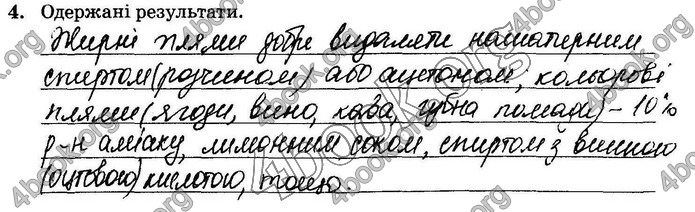 4. Одержані результати.
Жирні плями добре видаляти нашатирним
спиртом (розчином) або ацетоном, кольорові
плями (ягоди, вино, кава, губна помада) – 10%
р-н аміаку, лимонним соком, спиртом з винною
(оцтовою) кислотою, тощо.
4book.org